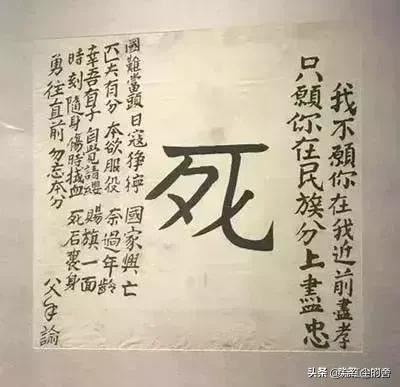 我不願你在我近前盡孝
只願你在民族分上盡忠
死
國難當頭 日寇猙獰 國家興亡
匹夫有分 本欲服役 奈過年齡
幸吾有子 自覺請纓 賜旗一面
時刻隨身 傷時拭血 死后裹身
勇往直前 勿忘本分
父手諭
头条